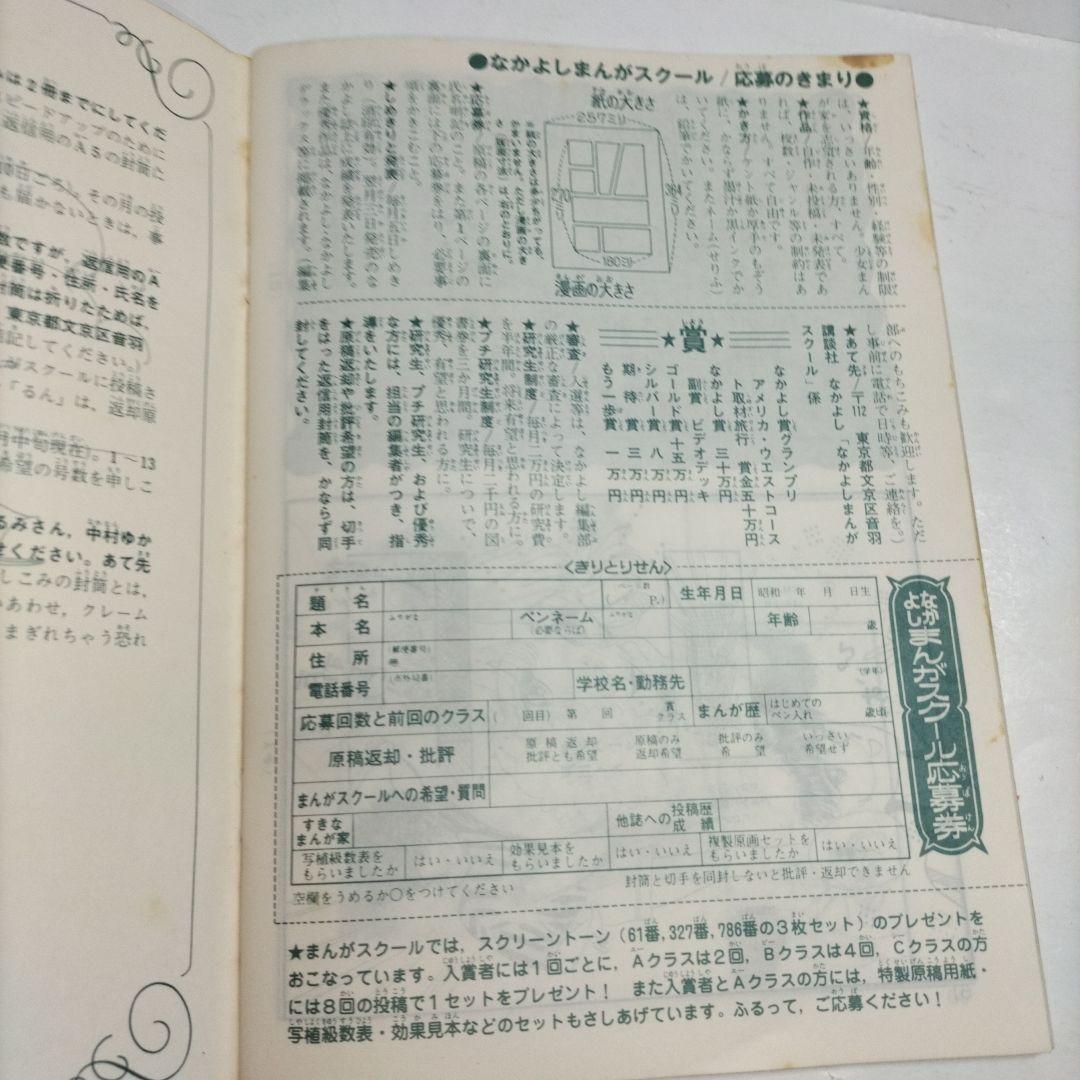 は2冊までにしてくだ
ピードアップのために
返信用のA5の封筒に
その月の投
も届かないときは、事
数ですが、返信用のA
便番号・住所・氏名を
封筒は折りたためば、
東京都文京区音羽
記してください。)
がスクールに投稿さ
「るん」は、返却原
月中旬現在)。1―13
希望の号数を申しこ
るみさん，中村ゆか
せください。あて先
しこみの封筒とは，
いあわせ，クレーム
まぎれちゃう恐れ
●なかよしまんがスクール/応募のきまり●
★資格/年齢・性別・経験等の制限
は、いっさいありません。少女まん
が家を志望される方、すべて。
★作品/自作・未投稿・未発表であ
れば、枚数・ジャンル等の制約はあ
りません。すべて自由です。
★かき方/ケント紙か厚手のもぞう
紙に、かならず墨汁か黒インクでか
いてください。またネーム(せりふ)
は、鉛筆でかいてください。
紙の大きさ
257ミリ
364ミリ
270ミリ
180ミリ
漫画の大きさ
※紙の大きさは多少ちがっても、
かまいません。ただし漫画の大き
さ(版面寸法)は、右のとおりに。
★応募券/原稿の各ページの裏面に
氏名明記のこと。また第1ページの
裏面に以下の応募券をはり、必要事
項をかきこむこと。
★しめきりと発表/毎月五日しめき
り(消印有効)、翌月三日発売のな
かよし誌上に成績を発表いたします。
また優秀作品は、なかよし・なかよし
デラックス等に掲載されます。(編集
部へのもちこみも歓迎します。ただ
し事前に電話で日時等、ご連絡を。)
★あて先/〒112 東京都文京区音羽
講談社 なかよし「なかよしまんが
スクール」係
★賞★
なかよし賞グランプリ
アメリカ・ウエストコース
ト取材旅行 賞金五十万円
なかよし賞 三十万円
副賞 ビデオデッキ
ゴールド賞 十五万円
シルバー賞 八万円
期待賞 三万円
もう一歩賞 一万円
★審査/入選等は、なかよし編集部
の厳正な審査によって決定します。
★研究生制度/毎月二万円の研究費
を半年間。将来有望と思われる方に。
★プチ研究生制度/毎月二千円の図
書券を三か月間。研究生について、
優秀、有望と思われる方に。
★研究生、プチ研究生、および優秀
な方には、担当の編集者がつき、指
導をいたします。
★原稿返却や批評希望の方は、切手
をはった返信用封筒を、かならず同
封してください。
<きりとりせん>
題名 ページ数 ( P.) 生年月日 昭和 年 月 日生
本名 ふりがな ペンネーム (必要ならば) ふりがな 年齢 歳
住所 (郵便番号) 〒
電話番号 (市外局番) 学校名・勤務先 (学年)
応募回数と前回のクラス ( 回目) 第 回 賞 クラス まんが歴 はじめての ペン入れ 歳頃
原稿返却・批評 原稿返却 批評とも希望 原稿のみ 返却希望 批評のみ 希望 いっさい 希望せず
まんがスクールへの希望・質問
すきな まんが家 他誌への投稿歴 成績
写植級数表を もらいましたか はい・いいえ 効果見本を もらいましたか はい・いいえ 複製原画セットを もらいましたか はい・いいえ
空欄をうめるか○をつけてください
封筒と切手を同封しないと批評・返却できません
なかよしまんがスクール応募券
★まんがスクールでは，スクリーントーン(61番,327番,786番の3枚セット)のプレゼントを
おこなっています。入賞者には1回ごとに，Aクラスは2回，Bクラスは4回，Cクラスの方
には8回の投稿で1セットをプレゼント！ また入賞者とAクラスの方には，特製原稿用紙・
写植級数表・効果見本などのセットもさしあげています。ふるって，ご応募ください！